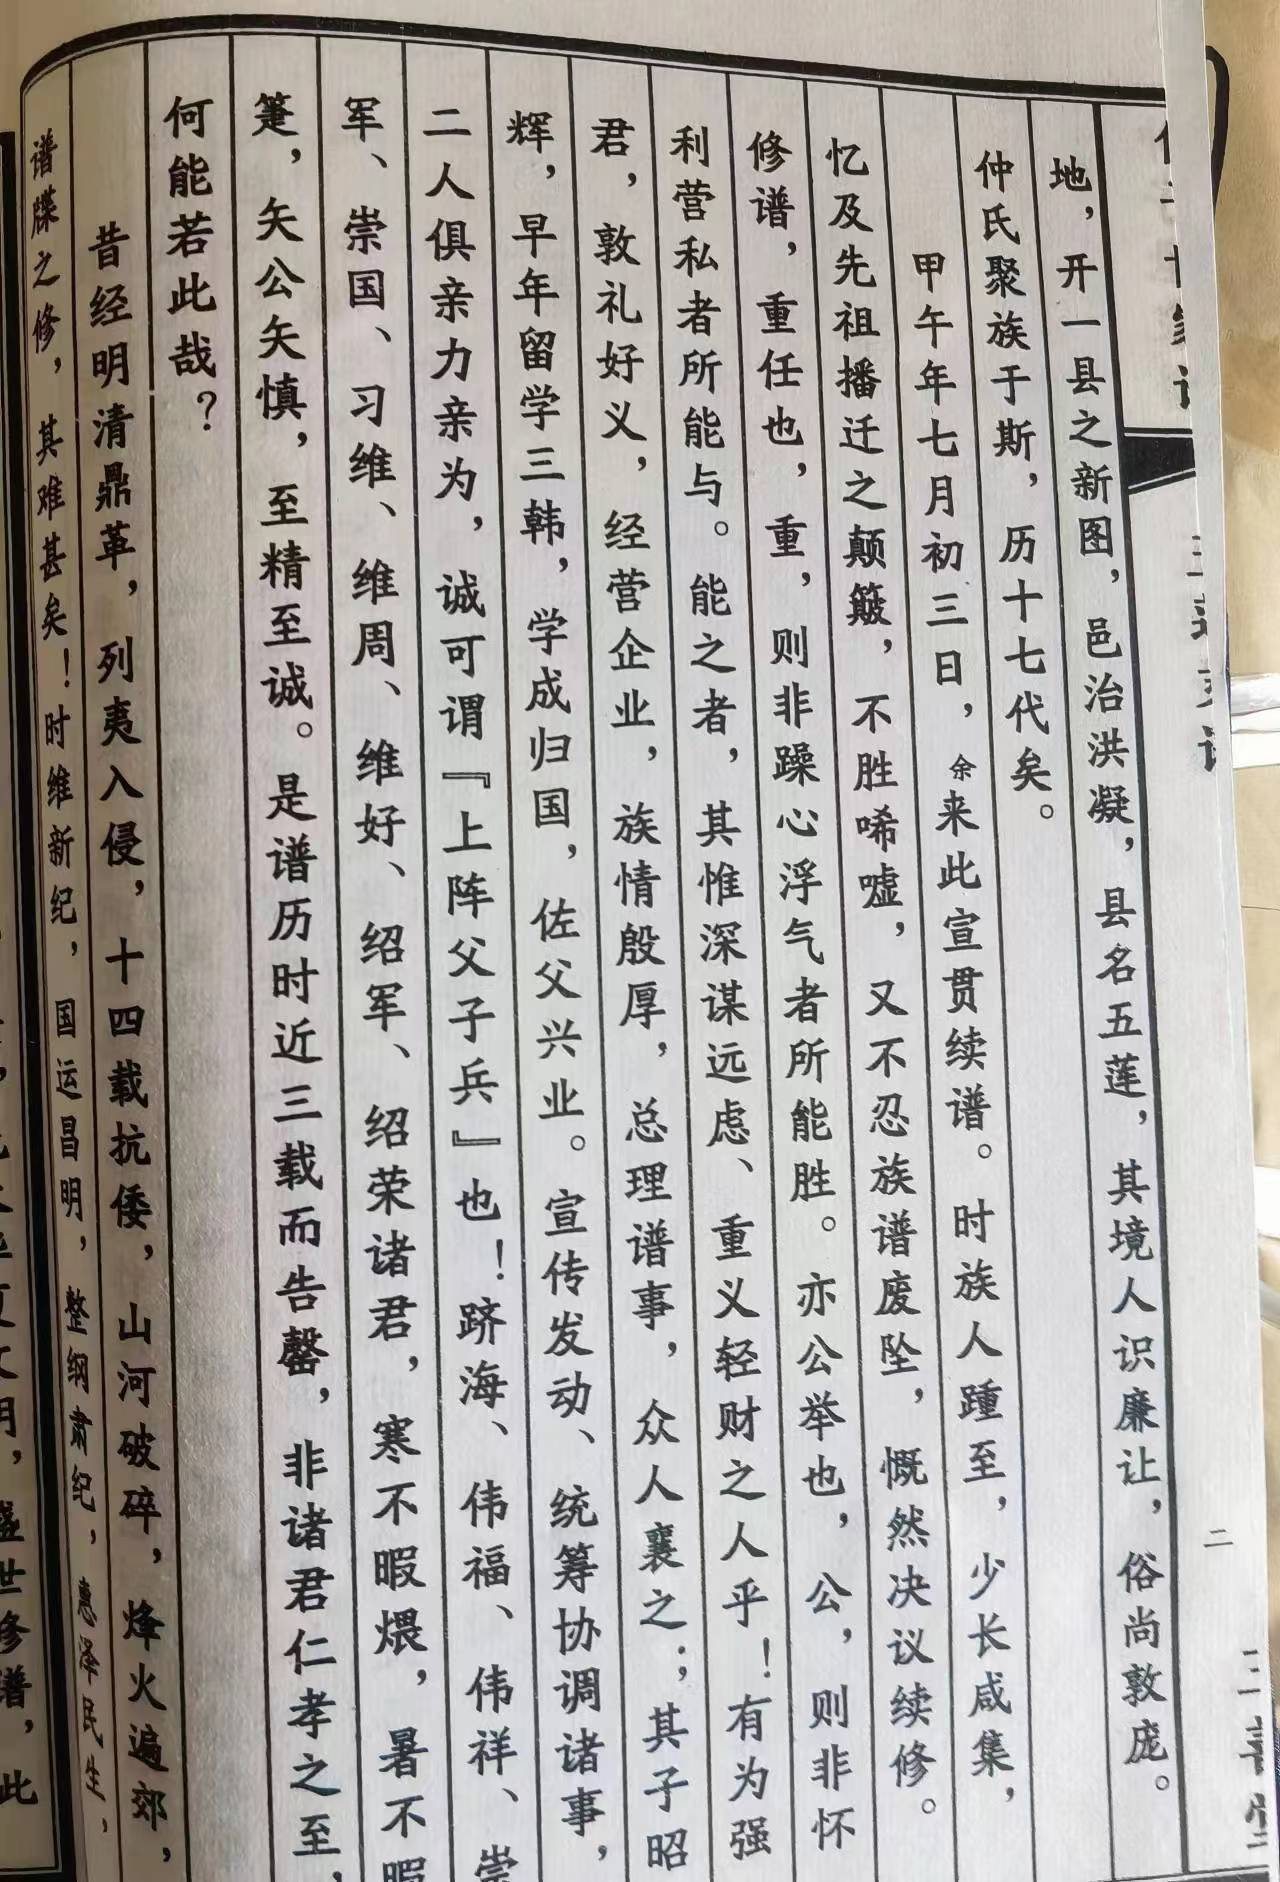 二
地，开一县之新图，邑治洪凝，县名五莲，其境人识廉让，俗尚敦庞。
仲氏聚族于斯，历十七代矣。
甲午年七月初三日，余来此宣贯续谱。时族人踵至，少长咸集，
忆及先祖播迁之颠簸，不胜唏嘘，又不忍族谱废坠，慨然决议续修。
修谱，重任也，重，则非躁心浮气者所能胜。亦公举也，公，则非怀
利营私者所能与。能之者，其惟深谋远虑、重义轻财之人乎！有为强
君，敦礼好义，经营企业，族情殷厚，总理谱事，众人襄之；其子昭
辉，早年留学三韩，学成归国，佐父兴业。宣传发动、统筹协调诸事，
二人俱亲力亲为，诚可谓『上阵父子兵』也！跻海、伟福、伟祥、崇
军、崇国、习维、维周、维好、绍军、绍荣诸君，寒不暇煨，暑不暇
箑，矢公矢慎，至精至诚。是谱历时近三载而告罄，非诸君仁孝之至，
何能若此哉？
昔经明清鼎革，列夷入侵，十四载抗倭，山河破碎，烽火遍郊，
谱牒之修，其难甚矣！时维新纪，国运昌明，整纲肃纪，惠泽民生，
盛世修谱，此